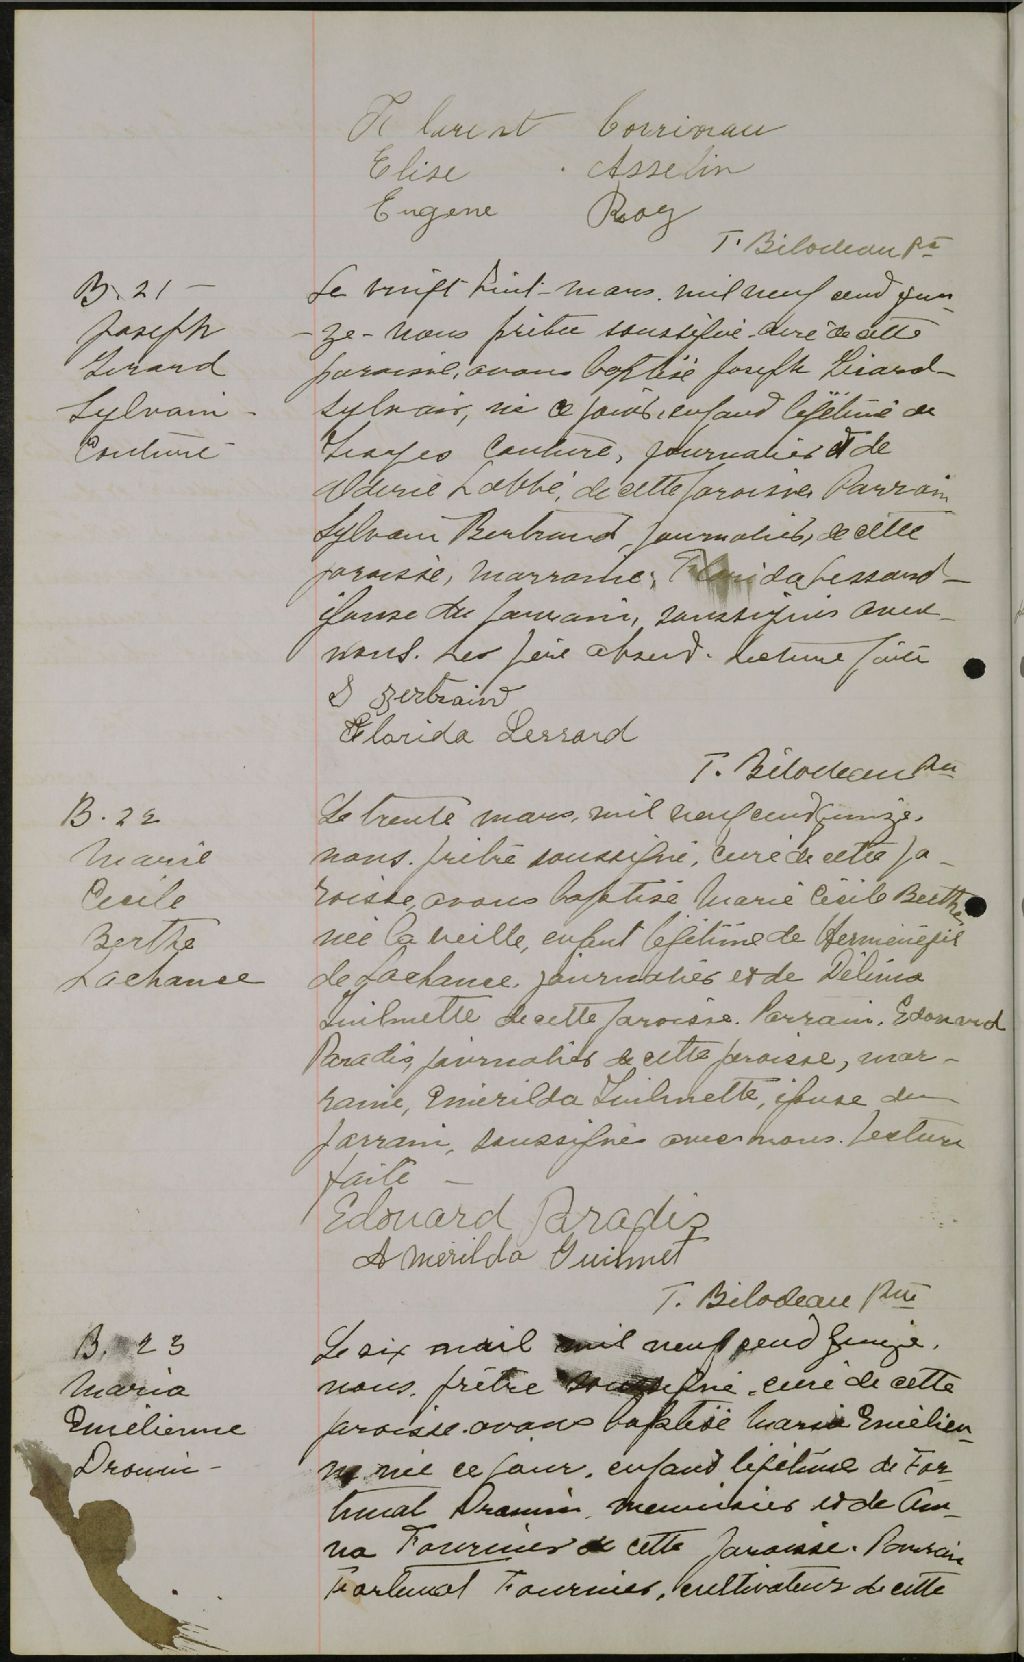 Florent Corriveau
Elise Asselin
Eugene Roy
T. Bilodeau Ptre
B. 21
Joseph
Gerard
Sylvain
Couture
Le vingt huit mars, mil neuf cent quin-
-ze nous prêtre soussigné curé de cette
paroisse, avons baptisé Joseph Gérard
Sylvain, né ce jour, enfant légitime de
Georges Couture, journalier et de
Labbé, de cette paroisse. Parrain
Sylvain Bertrand, journalier, de cette
paroisse, marraine, Florida Lessard
épouse du parrain, soussignés avec
nous. Le père absent. Lecture faite
S Bertrand
Florida Lessard
T. Bilodeau Ptre
B. 22
Marie
Cecile
Berthe
Lachance
Le trente mars, mil neuf cent quinze,
nous, prêtre soussigné, curé de cette pa-
roisse, avons baptisé Marie Cécile Berthe,
née la veille, enfant légitime de Herménégil
de Lachance, journalier et de Délima
Guilmette de cette paroisse. Parrain, Edouard
Paradis, journalier de cette paroisse, mar-
raine, Emérilda Guilmette, épouse du
parrain, soussignés avec nous. Lecture
faite
Edouard Paradis
Amérilda Guilmet
T. Bilodeau Ptre
B. 23
Maria
Emélienne
Drouin
Le six mil neuf cent quinze,
nous, prêtre soussigné, curé de cette
paroisse avons baptisé Maria Emélien-
ne née ce jour, enfant légitime de For-
tunat Drouin, menuisier et de An-
na Fournier de cette paroisse. Parrain
Fortunat Fournier, cultivateur de cette